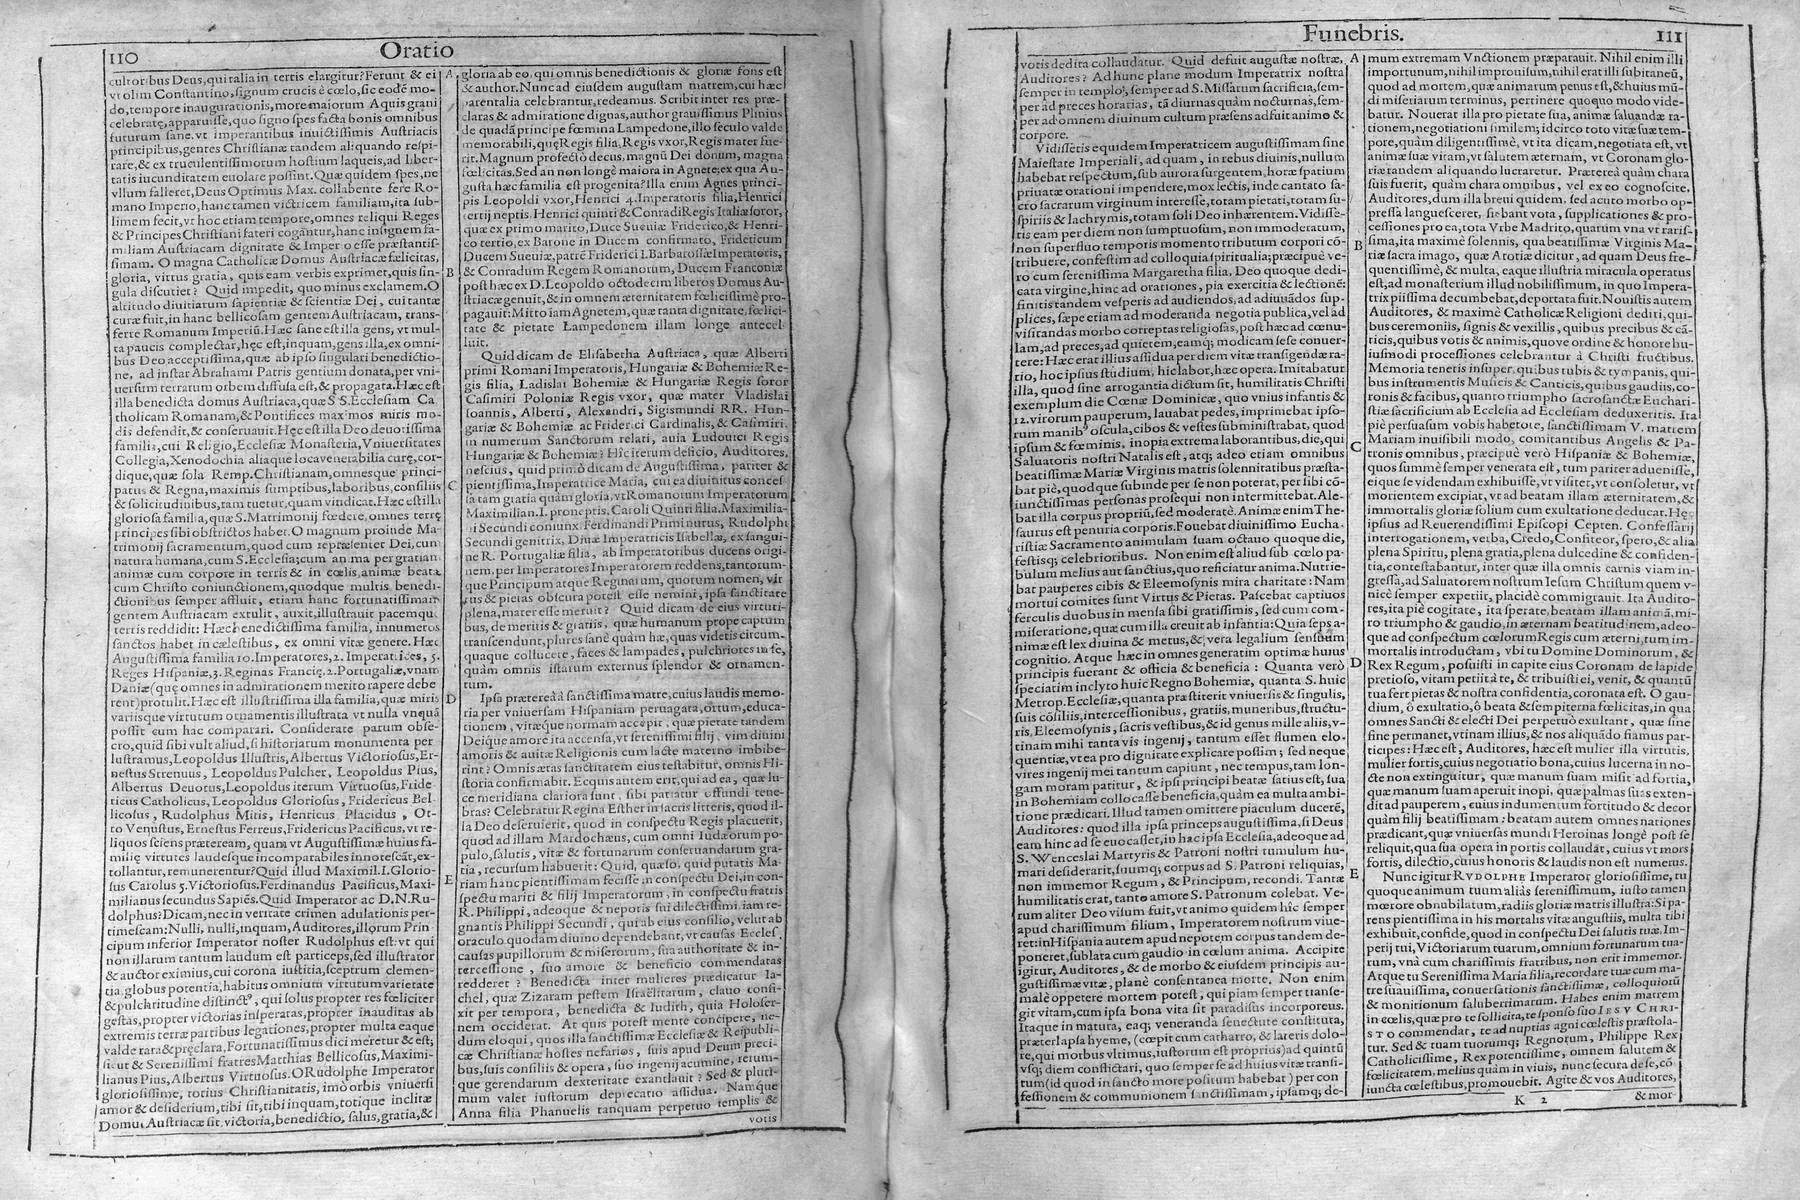 110
Oratio
cultoribus Deus, qui talia in terris elargitur? Ferunt & ei
vt olim Constantino, signum crucis è cœlo, sic eodē mo-
do, tempore inaugurationis, more maiorum Aquis grani
celebratę, apparuisse, quo signo spes facta bonis omnibus
futurum sane, vt imperantibus inuictissimis Austriacis
principibus, gentes Christianæ tandem aliquando respi-
rare, & ex truculentissimorum hostium laqueis, ad liber-
tatis iucunditatem euolare possint. Quæ quidem spes, ne
vllum falleret, Deus Optimus Max. collabente fere Ro-
mano Imperio, hanc tamen victricem familiam, ita sub-
limem fecit, vt hoc etiam tempore, omnes reliqui Reges
& Principes Christiani fateri cogantur, hanc insignem fa-
miliam Austriacam dignitate & Imperio esse præstantis-
simam. O magna Catholicæ Domus Austriacæ fœlicitas,
gloria, virtus gratia, quis eam verbis exprimet, quis sin-
gula discutiet? Quid impedit, quo minus exclamem. O
altitudo diuitiarum sapientiæ & scientiæ Dei, cui tantæ
curæ fuit, in hanc bellicosam gentem Austriacam, trans-
ferre Romanum Imperiū. Hæc sane est illa gens, vt mul-
ta paucis complectar, hęc est, inquam, gens illa, ex omni-
bus Deo acceptissima, quæ ab ipso singulari benedictio-
ne, ad instar Abrahami Patris gentium donata, per vni-
uersum terrarum orbem diffusa est, & propagata. Hæc est
illa benedicta domus Austriaca, quæ S S. Ecclesiam Ca
tholicam Romanam, & Pontifices maximos miris mo-
dis defendit, & conseruauit. Hęc est illa Deo deuotissima
familia, cui Religio, Ecclesiæ Monasteria, Vniuersitates
Collegia, Xenodochia aliaque loca venerabilia curę, cor-
dique, quæ sola Remp. Christianam, omnesque princi-
patus & Regna, maximis sumptibus, laboribus, consiliis
& solicitudinibus, tam tuetur, quam vindicat. Hæc est illa
gloriosa familia, quæ S. Matrimonij fœdere, omnes terrę
principes sibi obstrictos habet. O magnum proinde Ma-
trimonij sacramentum, quod cum repræsentet Dei, cum
natura humana, cum S. Ecclesia; cum anima per gratiam
animæ cum corpore in terris & in cœlis, animæ beatæ
cum Christo coniunctionem, quodque multis benedi-
ctionibus semper affluit, etiam hanc fortunatissimam
gentem Austriacam extulit, auxit, illustrauit pacemqu.
terris reddidit: Hæc benedictissima familia, innumeros
sanctos habet in cœlestibus, ex omni vitæ genere. Hæc
Augustissima familia 10. Imperatores, 2. Imperatrices, 5.
Reges Hispaniæ, 3. Reginas Francię, 2. Portugaliæ, vnam
Daniæ (quę omnes in admirationem merito rapere debe
rent) protulit. Hæc est illustrissima illa familia, quæ miris
variisque virtutum ornamentis illustrata vt nulla vnquā
possit cum hac comparari. Considerate parum obse-
cro, quid sibi vult aliud, si historiarum monumenta per
lustramus, Leopoldus Illustris, Albertus Victoriosus, Er-
nestus Strenuus, Leopoldus Pulcher, Leopoldus Pius,
Albertus Deuotus, Leopoldus iterum Virtuosus, Fride
ricus Catholicus, Leopoldus Gloriosus, Fridericus Bel
licosus, Rudolphus Mitis, Henricus Placidus, Ot-
to Venustus, Ernestus Ferreus, Fridericus Pacificus, vt re-
liquos sciens præteream, quam vt Augustissimæ huius fa-
milię virtutes laudesque incomparabiles innotescāt, ex-
tollantur, remunerentur? Quid illud Maximil. I. Glorio-
sus Carolus 5. Victoriosus. Ferdinandus Pacificus, Maxi-
milianus secundus Sapiēs. Quid Imperator ac D. N. Ru-
dolphus? Dicam, nec in veritate crimen adulationis per-
timescam: Nulli, nulli, inquam, Auditores, illorum Prin-
cipum inferior Imperator noster Rudolphus est: vt qui
non illarum tantum laudum est particeps, sed illustrator
& auctor eximius, cui corona iustitia, sceptrum clemen-
tia, globus potentia, habitus omnium virtutum varietate
& pulchritudine distinct9, qui solus propter res fœliciter
gestas, propter victorias insperatas, propter inauditas ab
extremis terræ partibus legationes, propter multa eaque
valde rara & pręclara, Fortunatissimus dici meretur & est;
sicut & Serenissimi fratres Matthias Bellicosus, Maximi-
lianus Pius, Albertus Virtuosus. O Rudolphe Imperator
gloriosissime, totius Christianitatis, imò orbis vniuersi
amor & desiderium, tibi sit, tibi inquam, totique inclitæ
Domui Austriacæ sit victoria, benedictio, salus, gratia, &
A
B
C
D
E
gloria ab eo, qui omnis benedictionis & gloriæ fons est
& author. Nunc ad eiusdem augustam matrem, cui hæc
parentalia celebrantur, redeamus. Scribit inter res præ-
claras & admiratione dignas, author grauissimus Plinius
de quadā principe fœmina Lampedone, illo seculo valde
memorabili, quę Regis filia, Regis vxor, Regis mater fue-
rit. Magnum profectò decus, magnū Dei donum, magna
fœlicitas. Sed an non longè maiora in Agnete; ex qua Au-
gusta hæc familia est progenita? Illa enim Agnes princi-
pis Leopoldi vxor, Henrici 4. Imperatoris filia, Henrici
tertij neptis. Henrici quinti & Conradi Regis Italiæ soror,
quæ ex primo marito, Duce Sueuiæ Friderico, & Henri-
co tertio, ex Barone in Ducem confirmato, Fridericum
Ducem Sueuiæ, patrē Friderici I. Barbarossæ Imperatoris,
& Conradum Regem Romanorum, Ducem Franconiæ
post hæc ex D. Leopoldo octodecim liberos Domus Au-
striacæ genuit, & in omnem æternitatem fœlicissimè pro-
pagauit: Mitto iam Agnetem, quæ tanta dignitate, fœlici-
tate & pietate Lampedonem illam longe antecel
luit.
Quid dicam de Elisabetha Austriaca, quæ Alberti
primi Romani Imperatoris, Hungariæ & Bohemiæ Re-
gis filia, Ladislai Bohemiæ & Hungariæ Regis soror
Casimiri Poloniæ Regis vxor, quæ mater Vladislai
Ioannis, Alberti, Alexandri, Sigismundi RR. Hun-
gariæ & Bohemiæ ac Friderici Cardinalis, & Casimiri,
in numerum Sanctorum relati, auia Ludouici Regis
Hungariæ & Bohemiæ? Hic iterum deficio, Auditores,
nescius, quid primò dicam de Augustissima, pariter &
pientissima, Imperatrice Maria, cui ea diuinitus conces
sa tam gratia quàm gloria, vt Romanorum Imperatorum
Maximilian. I. proneptis. Caroli Quinti filia. Maximilia-
ni Secundi coniunx Ferdinandi Primi nurus, Rudolphi
Secundi genitrix, Diuæ Imperatricis Isabellæ, ex sangui-
ne R. Portugaliæ filia, ab Imperatoribus ducens origi-
nem, per Imperatores Imperatorem reddens, tantorum-
que Principum atque Reginarum, quorum nomen, vir
tus & pietas obscura potest esse nemini, ipsa sanctitate
plena, mater esse meruit? Quid dicam de eius virtuti-
bus, de meritis & gratiis, quæ humanum prope captum
transcendunt, plures sanè quàm hæ, quas videtis circum-
quaque collucere, faces & lampades, pulchriores in se,
quàm omnis istarum externus splendor & ornamen-
tum.
Ipsa præterea à sanctissima matre, cuius laudis memo-
ria per vniuersam Hispaniam peruagata, ortum, educa-
tionem, vitæque normam accepit, quæ pietate tandem
Deique amore ita accensa, vt serenissimi filij, vim diuini
amoris & auitæ Religionis cum lacte materno imbibe-
rint? Omnis ætas sanctitatem eius testabitur, omnis Hi-
storia confirmabit. Ecquis autem erit, qui ad ea, quæ lu-
ce meridiana clariora sunt, sibi patiatur offundi tene-
bras? Celebratur Regina Esther in sacris litteris, quod il-
la Deo deseruierit, quod in conspectu Regis placuerit,
quod ad illam Mardochæus, cum omni Iudæorum po-
pulo, salutis, vitæ & fortunarum conseruandarum gra-
tia, recursum habuerit: Quid, quæso, quid putatis Ma-
riam hanc pientissimam fecisse in conspectu Dei, in con-
spectu mariti & filij Imperatorum, in conspectu fratris
R. Philippi, adeoque & nepotis sui dilectissimi, iam re-
gnantis Philippi Secundi, qui ab eius consilio, velut ab
oraculo quodam diuino dependebant, vt causas Eccles.
causas pupillorum & miserorum, sua authoritate & in-
tercessione, suo amore & beneficio commendatas
redderet? Benedicta inter mulieres prædicatur Ia-
chel, quæ Zizaram pestem Israëlitarum, clauo confi-
xit per tempora, benedicta & Iudith, quia Holofer-
nem occiderat. At quis potest mente concipere, ne-
dum eloqui, quos illa sanctissimæ Ecclesiæ & Reipubli-
cæ Christianæ hostes nefarios, suis apud Deum preci-
bus, suis consiliis & opera, suo ingenij acumine, rerum-
que gerendarum dexteritate exantlauit? Sed & pluri-
mum valet iustorum deprecatio assidua. Namque
Anna filia Phanuelis tanquam perpetuo templis &
votis
Funebris.
111
votis dedita collaudatur. Quid defuit augustæ nostræ,
Auditores? Ad hunc plane modum Imperatrix nostra
semper in templo, semper ad S. Missarum sacrificia, sem-
per ad preces horarias, tā diurnas quàm nocturnas, sem-
per ad omnem diuinum cultum præsens adfuit animo &
corpore.
Vidissetis equidem Imperatricem augustissimam sine
Maiestate Imperiali, ad quam, in rebus diuinis, nullum
habebat respectum, sub aurora surgentem, horæ spatium
priuatæ orationi impendere, mox lectis, inde cantato sa-
cro sacrarum virginum interesse, totam pietati, totam su-
spiriis & lachrymis, totam soli Deo inhærentem. Vidisse-
tis eam per diem non sumptuosum, non immoderatum,
non superfluo temporis momento tributum corpori cō-
tribuere, confestim ad colloquia spiritualia; præcipuè ve-
ro cum serenissima Margaretha filia, Deo quoque dedi-
cata virgine, hinc ad orationes, pia exercitia & lectionē:
finitis tandem vesperis ad audiendos, ad adiuuādos sup-
plices, sæpe etiam ad moderanda negotia publica, vel ad
visitandas morbo correptas religiosas, post hæc ad cœnu-
lam, ad preces, ad quietem, eamq; modicam sese conuer-
tere: Hæc erat illius assidua per diem vitæ transigendæ ra-
tio, hoc ipsius studium, hic labor, hæc opera. Imitabatur
illa, quod sine arrogantia dictum sit, humilitatis Christi
exemplum die Cœnæ Dominicæ, quo vnius infantis &
12. virorum pauperum, lauabat pedes, imprimebat ipso-
rum manib9 oscula, cibos & vestes subministrabat, quod
ipsum & fœminis, inopia extrema laborantibus, die, qui
Saluatoris nostri Natalis est, atq; adeo etiam omnibus
beatissimæ Mariæ Virginis matris solennitatibus præsta-
bat piè, quodque subinde per se non poterat, per sibi cō-
iunctissimas personas prosequi non intermittebat. Ale-
bat illa corpus propriū, sed moderatè. Animæ enim The-
saurus est penuria corporis. Fouebat diuinissimo Eucha-
ristiæ Sacramento animulam suam octauo quoque die,
festisq; celebrioribus. Non enim est aliud sub cœlo pa-
bulum melius aut sanctius, quo reficiatur anima. Nutrie-
bat pauperes cibis & Eleemosynis mira charitate: Nam
mortui comites sunt Virtus & Pietas. Pascebat captiuos
ferculis duobus in mensa sibi gratissimis, sed cum com-
miseratione, quæ cum illa creuit ab infantia: Quia seps a-
nimæ est lex diuina & metus, & vera legalium sensuum
cognitio. Atque hæc in omnes generatim optimæ huius
principis fuerant & officia & beneficia: Quanta verò
speciatim inclyto huic Regno Bohemiæ, quanta S. huic
Metrop. Ecclesiæ, quanta præstiterit vniuersis & singulis,
suis cōsiliis, intercessionibus, gratiis, muneribus, structu-
ris, Eleemosynis, sacris vestibus, & id genus mille aliis, v-
tinam mihi tanta vis ingenij, tantum esset flumen elo-
quentiæ, vt ea pro dignitate explicare possim; sed neque
vires ingenij mei tantum capiunt, nec tempus, tam lon-
gam moram patitur, & ipsi principi beatæ satius est, sua
in Bohemiam collocasse beneficia, quàm ea multa ambi-
tione prædicari. Illud tamen omittere piaculum ducerē,
Auditores: quod illa ipsa princeps augustissima, si Deus
eam hinc ad se euocasset, in hac ipsa Ecclesia, adeoque ad
S. Wenceslai Martyris & Patroni nostri tumulum hu-
mari desiderarit, suumq; corpus ad S. Patroni reliquias,
non immemor Regum, & Principum, recondi. Tantæ
humilitatis erat, tanto amore S. Patronum colebat. Ve-
rum aliter Deo visum fuit, vt animo quidem hîc semper
apud charissimum filium, Imperatorem nostrum viue-
ret: in Hispania autem apud nepotem corpus tandem de-
poneret, sublata cum gaudio in cœlum anima. Accipite
igitur, Auditores, & de morbo & eiusdem principis au-
gustissimæ vitæ, planè consentanea morte. Non enim
malè oppetere mortem potest, qui piam semper transe-
git vitam, cum ipsa bona vita sit paradisus incorporeus.
Itaque in matura, eaq; veneranda senectute constituta,
præter lapsa hyeme, (cœpit cum catharro, & lateris dolo-
re, qui morbus vltimus, iustorum est proprius) ad quintū
vsq; diem conflictari, quo semper se ad huius vitæ transi-
tum (id quod in sancto more positum habebat) per con
fessionem & communionem sanctissimam, ipsamq; de-
A
B
C
D
E
mum extremam Vnctionem præparauit. Nihil enim illi
importunum, nihil improuisum, nihil erat illi subitaneū,
quod ad mortem, quæ animarum penus est, & huius mū-
di miseriarum terminus, pertinere quoquo modo vide-
batur. Nouerat illa pro pietate sua, animæ saluandæ ra-
tionem, negotiationi similem; idcirco toto vitæ suæ tem-
pore, quàm diligentissimè, vt ita dicam, negotiata est, vt
animæ suæ vitam, vt salutem æternam, vt Coronam glo-
riæ tandem aliquando lucraretur. Prætereà quàm chara
suis fuerit, quàm chara omnibus, vel ex eo cognoscite.
Auditores, dum illa breui quidem, sed acuto morbo op-
pressa languesceret, fiebant vota, supplicationes & pro-
cessiones pro ea, tota Vrbe Madrito, quarum vna vt raris-
sima, ita maximè solennis, qua beatissimæ Virginis Ma-
riæ sacra imago, quæ Atotiæ dicitur, ad quam Deus fre-
quentissimè, & multa, eaque illustria miracula operatus
est, ad monasterium illud nobilissimum, in quo Impera-
trix piissima decumbebat, deportata fuit. Nouistis autem
Auditores, & maximè Catholicæ Religioni dediti, qui-
bus ceremoniis, signis & vexillis, quibus precibus & cā-
ticis, quibus votis & animis, quove ordine & honore hu-
iusmodi processiones celebrantur à Christi fructibus.
Memoria teneris insuper, quibus tubis & tympanis, qui-
bus instrumentis Musicis & Canticis, quibus gaudiis, co-
ronis & facibus, quanto triumpho sacrosanctæ Euchari-
stiæ sacrificium ab Ecclesia ad Ecclesiam deduxeritis. Ita
piè persuasum vobis habetote, sanctissimam V. matrem
Mariam inuisibili modo, comitantibus Angelis & Pa-
tronis omnibus, præcipuè verò Hispaniæ & Bohemiæ,
quos summè semper venerata est, tum pariter aduenisse,
eique se videndam exhibuisse, vt visitet, vt consoletur, vt
morientem excipiat, vt ad beatam illam æternitatem, &
immortalis gloriæ solium cum exultatione deducat. Hęc
ipsius ad Reuerendissimi Episcopi Cepten. Confessarij
interrogationem, verba, Credo, Confiteor, spero, & alia
plena Spiritu, plena gratia, plena dulcedine & confiden-
tia, contestabantur, inter quæ illa omnis carnis viam in-
gressa, ad Saluatorem nostrum Iesum Christum quem v-
nicè semper expetiit, placidè commigrauit. Ita Audito-
res, ita piè cogitate, ita sperate, beatam illam animā, mi-
ro triumpho & gaudio, in æternam beatitudinem, adeo-
que ad conspectum cœlorum Regis cum æterni, tum im-
mortalis introductam, vbi tu Domine Dominorum, &
Rex Regum, posuisti in capite eius Coronam de lapide
pretioso, vitam petiit à te, & tribuisti ei, venit, & quantū
tua fert pietas & nostra confidentia, coronata est. O gau-
dium, ô exultatio, ô beata & sempiterna fœlicitas, in qua
omnes Sancti & electi Dei perpetuò exultant, quæ sine
fine permanet, vtinam illius, & nos aliquādo fiamus par-
ticipes: Hæc est, Auditores, hæc est mulier illa virtutis,
mulier fortis, cuius negotiatio bona, cuius lucerna in no-
cte non extinguitur, quæ manum suam misit ad fortia,
quæ manum suam aperuit inopi, quæ palmas suas exten-
dit ad pauperem, cuius indumentum fortitudo & decor
quàm filij beatissimam: beatam autem omnes nationes
prædicant, quæ vniuersas mundi Heroinas longè post se
reliquit, qua sua opera in portis collaudāt, cuius vt mors
fortis, dilectio, cuius honoris & laudis non est numerus.
Nunc igitur RVDOLPHE Imperator gloriosissime, tu
quoque animum tuum aliàs serenissimum, iusto tamen
mœrore obnubilatum, radiis gloriæ matris illustra: Si pa-
rens pientissima in his mortalis vitæ angustiis, multa tibi
exhibuit, confide, quod in conspectu Dei salutis tuæ, Im-
perij tui, Victoriarum tuarum, omnium fortunarum tua-
rum, vnà cum charissimis fratribus, non erit immemor.
Atque tu Serenissima Maria filia, recordare tuæ cum ma-
tre suauissima, conuersationis sanctissimæ, colloquiorū
& monitionum saluberrimarum. Habes enim matrem
in cœlis, quæ pro te sollicita, te sponso suo IESV CHRI-
STO commendat, te ad nuptias agni cœlestis præstola-
tur. Sed & tuam tuorumq; Regnorum, Philippe Rex
Catholicissime, Rex potentissime, omnem salutem &
fœlicitatem, melius quàm in viuis, nunc secura de se, cō
iuncta cœlestibus, promouebit. Agite & vos Auditores,
K 2
& mor-